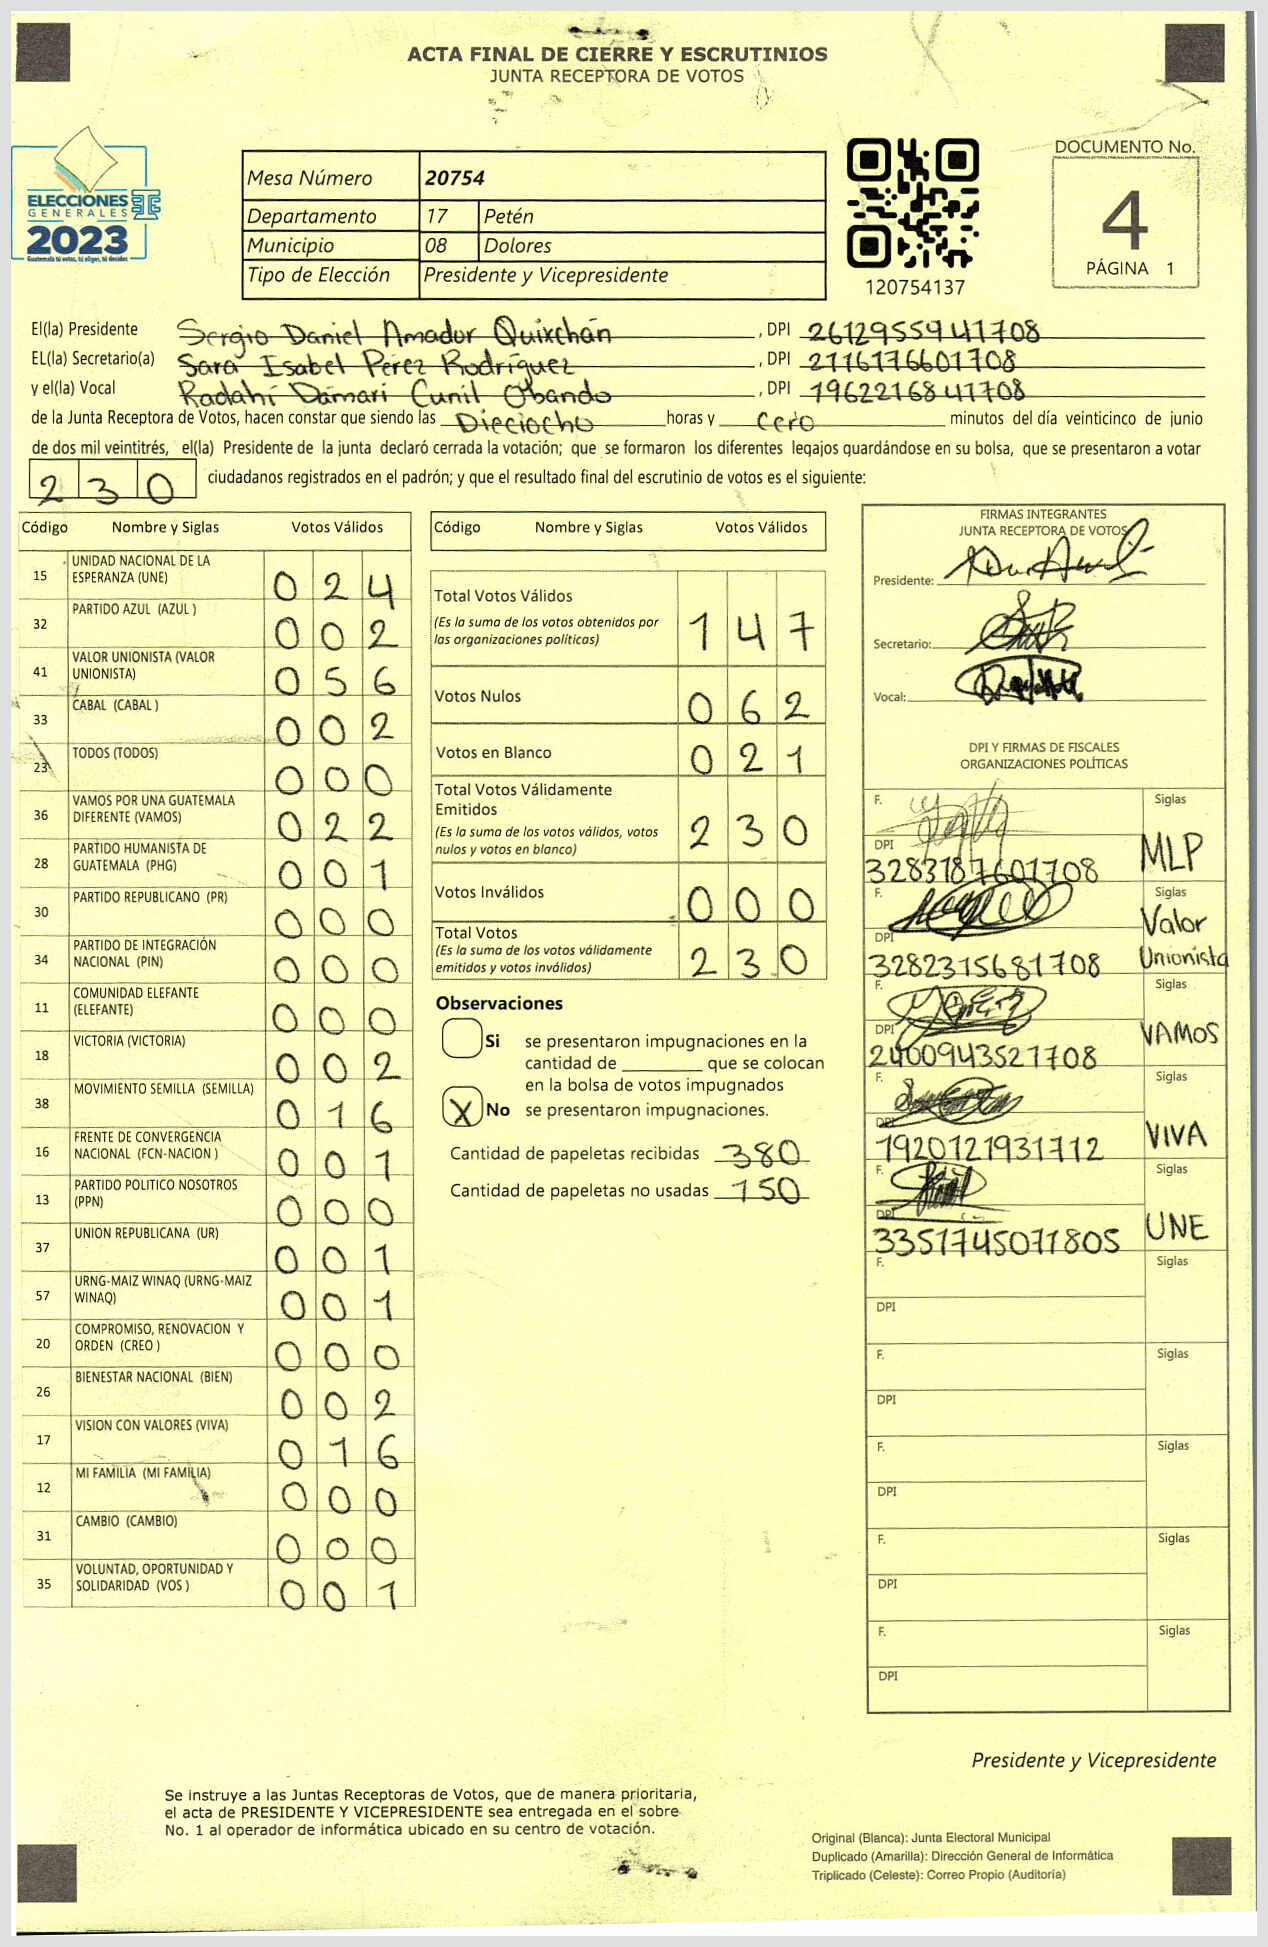 ACTA FINAL DE CIERRE Y ESCRUTINIOS
JUNTA RECEPTORA DE VOTOS
ELECCIONES
GENERALES
2023
Guatemala tú votas, tú eliges, tú decides
Mesa Número 20754
Departamento 17 Petén
Municipio 08 Dolores
Tipo de Elección Presidente y Vicepresidente
120754137
DOCUMENTO No.
4
PÁGINA 1
El(la) Presidente Sergio Daniel Amador Quixchán , DPI 2612955941708
EL(la) Secretario(a) Sara Isabel Pérez Rodríguez , DPI 2116176601708
y el(la) Vocal Radahí Dámari Cunil Obando , DPI 1962216841708
de la Junta Receptora de Votos, hacen constar que siendo las Dieciocho horas y cero minutos del día veinticinco de junio
de dos mil veintitrés, el(la) Presidente de la junta declaró cerrada la votación; que se formaron los diferentes legajos guardándose en su bolsa, que se presentaron a votar
230 ciudadanos registrados en el padrón; y que el resultado final del escrutinio de votos es el siguiente:
Código Nombre y Siglas Votos Válidos
15 UNIDAD NACIONAL DE LA
ESPERANZA (UNE) 024
32 PARTIDO AZUL (AZUL ) 002
41 VALOR UNIONISTA (VALOR
UNIONISTA) 056
33 CABAL (CABAL ) 002
23 TODOS (TODOS) 000
36 VAMOS POR UNA GUATEMALA
DIFERENTE (VAMOS) 022
28 PARTIDO HUMANISTA DE
GUATEMALA (PHG) 001
30 PARTIDO REPUBLICANO (PR) 000
34 PARTIDO DE INTEGRACIÓN
NACIONAL (PIN) 000
11 COMUNIDAD ELEFANTE
(ELEFANTE) 000
18 VICTORIA (VICTORIA) 002
38 MOVIMIENTO SEMILLA (SEMILLA) 016
16 FRENTE DE CONVERGENCIA
NACIONAL (FCN-NACION ) 001
13 PARTIDO POLITICO NOSOTROS
(PPN) 000
37 UNION REPUBLICANA (UR) 001
57 URNG-MAIZ WINAQ (URNG-MAIZ
WINAQ) 001
20 COMPROMISO, RENOVACION Y
ORDEN (CREO ) 000
26 BIENESTAR NACIONAL (BIEN) 002
17 VISION CON VALORES (VIVA) 016
12 MI FAMILIA (MI FAMILIA) 000
31 CAMBIO (CAMBIO) 000
35 VOLUNTAD, OPORTUNIDAD Y
SOLIDARIDAD (VOS ) 001
Código Nombre y Siglas Votos Válidos
Total Votos Válidos
(Es la suma de los votos obtenidos por
las organizaciones políticas) 147
Votos Nulos 062
Votos en Blanco 021
Total Votos Válidamente
Emitidos
(Es la suma de los votos válidos, votos
nulos y votos en blanco) 230
Votos Inválidos 000
Total Votos
(Es la suma de los votos válidamente
emitidos y votos inválidos) 230
Observaciones
Si se presentaron impugnaciones en la
cantidad de ________ que se colocan
en la bolsa de votos impugnados
X No se presentaron impugnaciones.
Cantidad de papeletas recibidas 380
Cantidad de papeletas no usadas 150
FIRMAS INTEGRANTES
JUNTA RECEPTORA DE VOTOS
Presidente:
Secretario:
Vocal:
DPI Y FIRMAS DE FISCALES
ORGANIZACIONES POLÍTICAS
F. Siglas
DPI 3283187601708 MLP
F. Siglas
DPI 3282315681708 Valor Unionista
F. Siglas
DPI 2400943521708 VAMOS
F. Siglas
DPI 1920121931712 VIVA
F. Siglas
DPI 3351745071805 UNE
F. Siglas
DPI
F. Siglas
DPI
F. Siglas
DPI
F. Siglas
DPI
F. Siglas
DPI
Presidente y Vicepresidente
Se instruye a las Juntas Receptoras de Votos, que de manera prioritaria,
el acta de PRESIDENTE Y VICEPRESIDENTE sea entregada en el sobre
No. 1 al operador de informática ubicado en su centro de votación.
Original (Blanca): Junta Electoral Municipal
Duplicado (Amarilla): Dirección General de Informática
Triplicado (Celeste): Correo Propio (Auditoría)